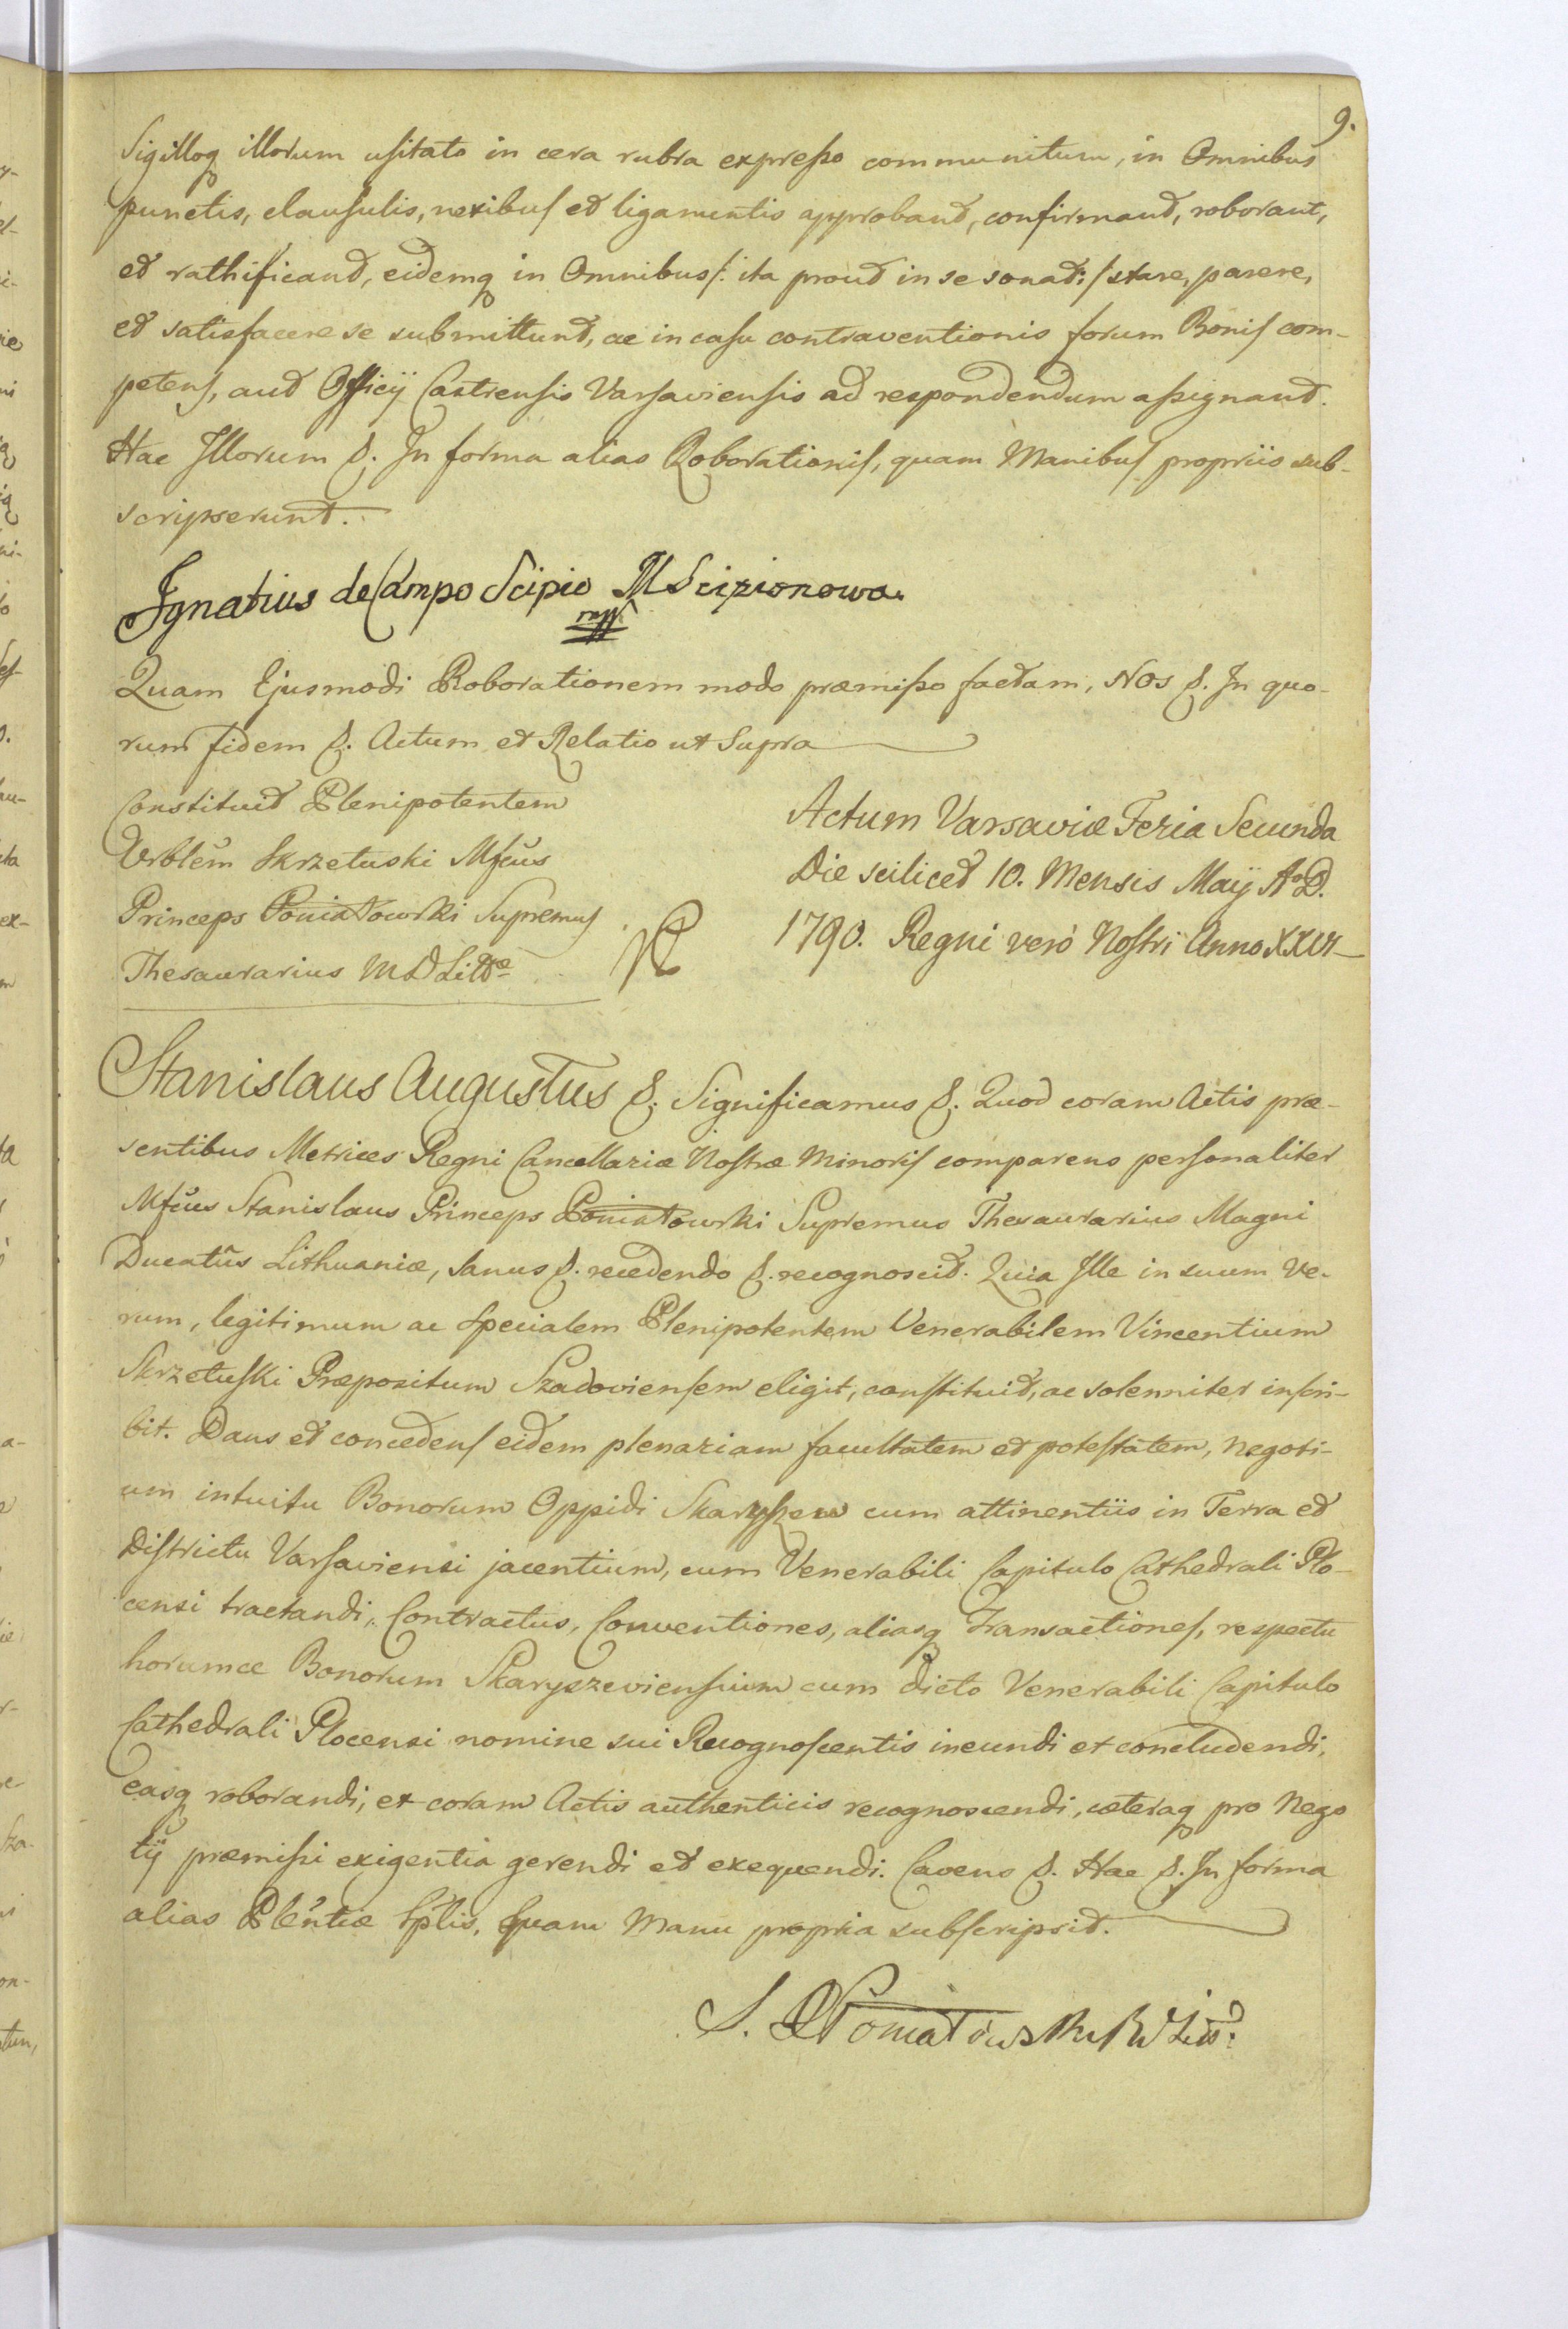 9.
Sigilloq illorum usitato in cera rubra expresso communitum, in Omnibus
punctis, clausulis, nexibus et ligamentis approbant, confirmant, roborant,
et rathificant, eidemq in Omnibus /: ita prout in se sonat :/ stare, parere,
et satisfacere se submittunt, ac in casu contraventionis forum Bonis com-
petens, aut Officÿ Castrensis Varsaviensis ad respondendum assignant.
Hac Illorum &. In forma alias Roborationis, quam Manibus propriis sub-
scripserunt.
Ignatius de Campo Scipio M Scipionowa.
mpp
Quam Ejusmodi Roborationem modo præmisso factam, Nos &. In quo-
rum fidem &. Actum et Relatio ut Supra
Constituit Plenipotentem
Vrblem Skrzetuski Mfcus
Princeps Poniatowski Supremus
Thesaurarius M D Littæ
Actum Varsaviæ Feria Secunda
Die scilicet 10. Mensis Maÿ A°D.
1790. Regni verò Nostri Anno XXVI
Stanislaus Augustus &. Significamus &. Quod coram Actis præ-
sentibus Metrices Regni Cancellariæ Nostræ Minoris comparens personaliter
Mfcus Stanislaus Princeps Poniatowski Supremus Thesaurarius Magni
Ducatûs Lithuaniæ, sanus &. recedendo &. recognoscit. Quia Ille in suum Ve-
rum, legitimum ac Specialem Plenipotentem Venerabilem Vincentium
Skrzetuski Præpositum Szadoviensem eligit, constituit, ac solenniter inscri-
bit. Dans et concedens eidem plenariam facultatem et potestatem, negoti-
um intuitu Bonorum Oppidi Skaryszew cum attinentiis in Terra et
Districtu Varsaviensi jacentium, cum Venerabili Capitulo Cathedrali Plo-
censi tractandi, Contractus, Conventiones, aliasq Transactiones, respectu
horumce Bonorum Skaryszeviensium cum dicto Venerabili Capitulo
Cathedrali Plocensi nomine sui Recognoscentis ineundi et concludendi,
easq roborandi, et coram Actis authenticis recognoscendi, cæteraq pro Nego
tÿ præmissi exigentia gerendi et exequendi. Cavens &. Hac &. In forma
alias Plentiæ Splis, Quam Manu propria subscripsit.
S. Poniatowski